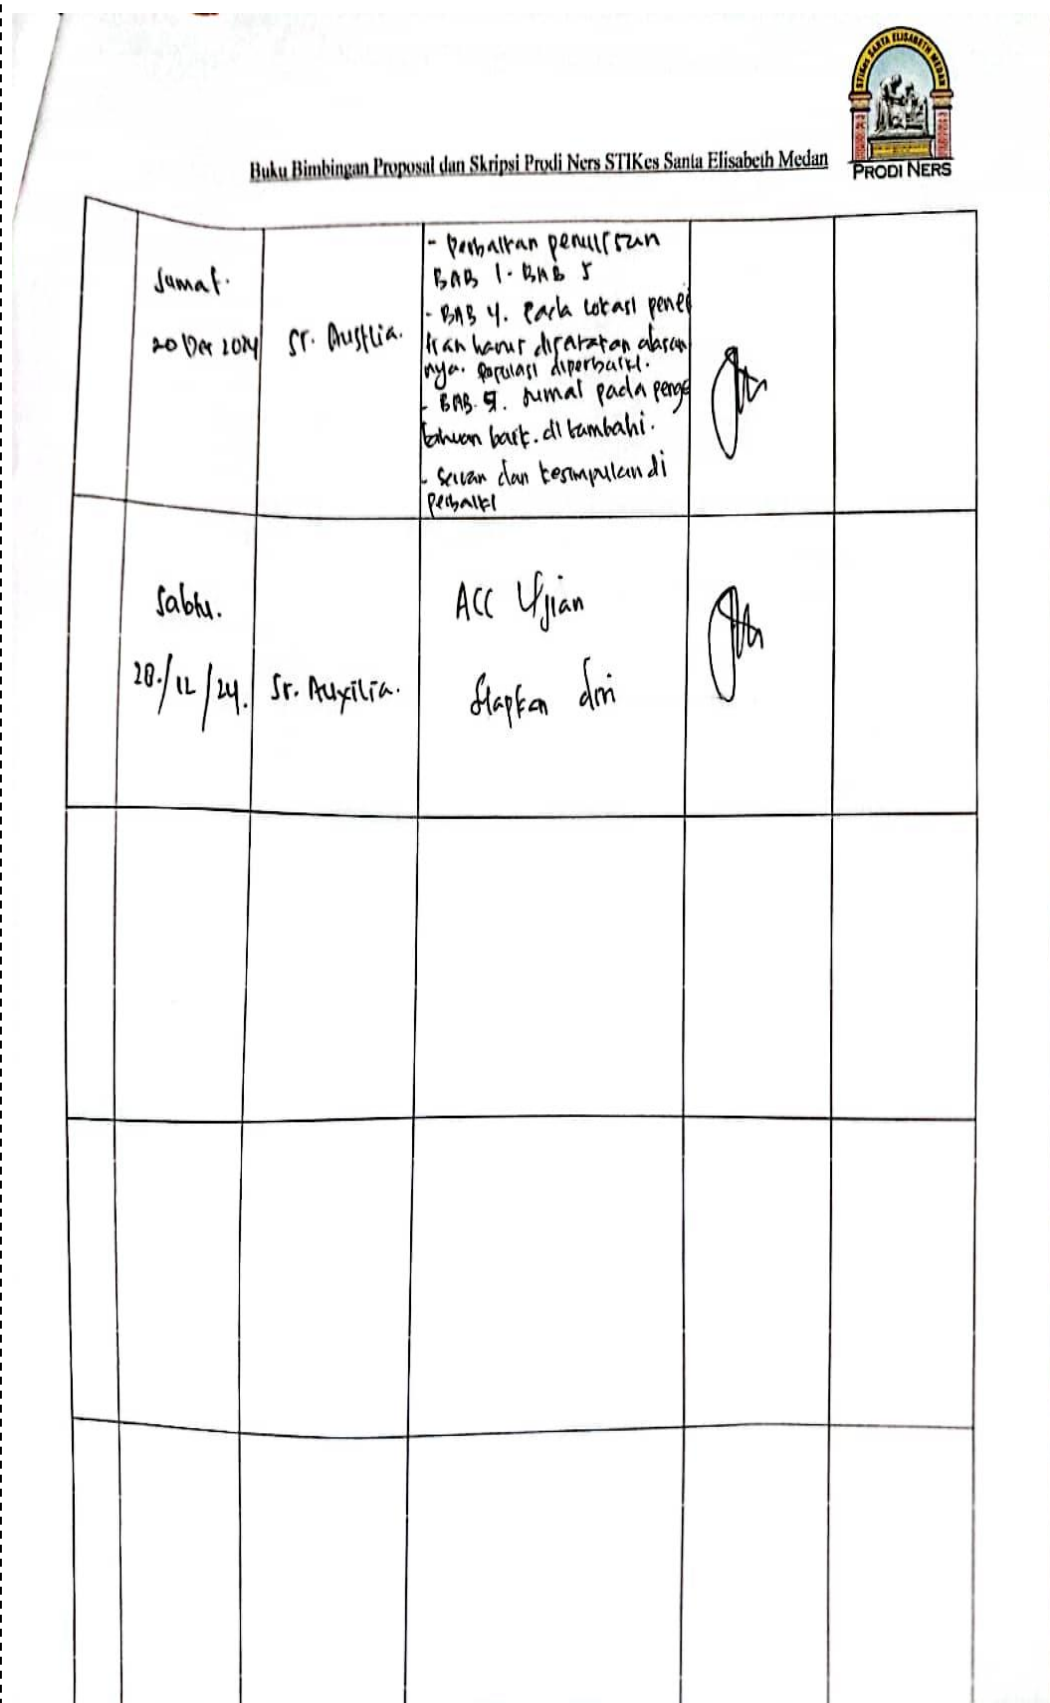 STIKes SANTA ELISABETH MEDAN
PRODI NERS
Buku Bimbingan Proposal dan Skripsi Prodi Ners STIKes Santa Elisabeth Medan
Jumat.
20 Des 2024
Sr. Auxilia.
- Perbaikan penulisan
BAB 1 - BAB 5
- BAB 4. Pada lokasi penel
itian harus dikatakan alasan
nya. Populasi diperbaiki.
- BAB. 5. Jurnal pada penge
tahuan baik. di tambahi.
- Saran dan kesimpulan di
perbaiki
Sabtu.
28./12/24.
Sr. Auxilia.
ACC Ujian
Siapkan diri